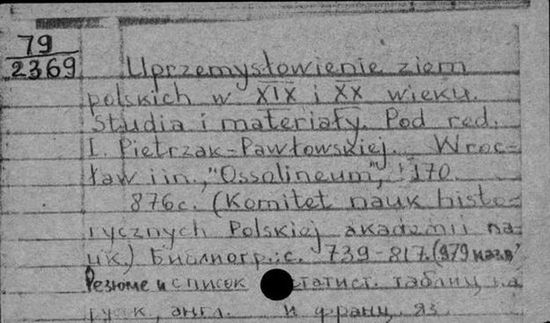 79
2369
Uprzemysłowienie ziem
polskich w XIX i XX wieku.
Studia i materiały. Pod red.
I. Pietrzak-Pawłowskiej. Wroc-
ław i in., "Ossolineum",
876с. (Komitet nauk histo-
rycznych Polskiej akademii na-
uk.) Библиогр.: с. 739-817. (979 назв.
Резюме и список статист. таблиц на
русск., англ. и франц. яз.